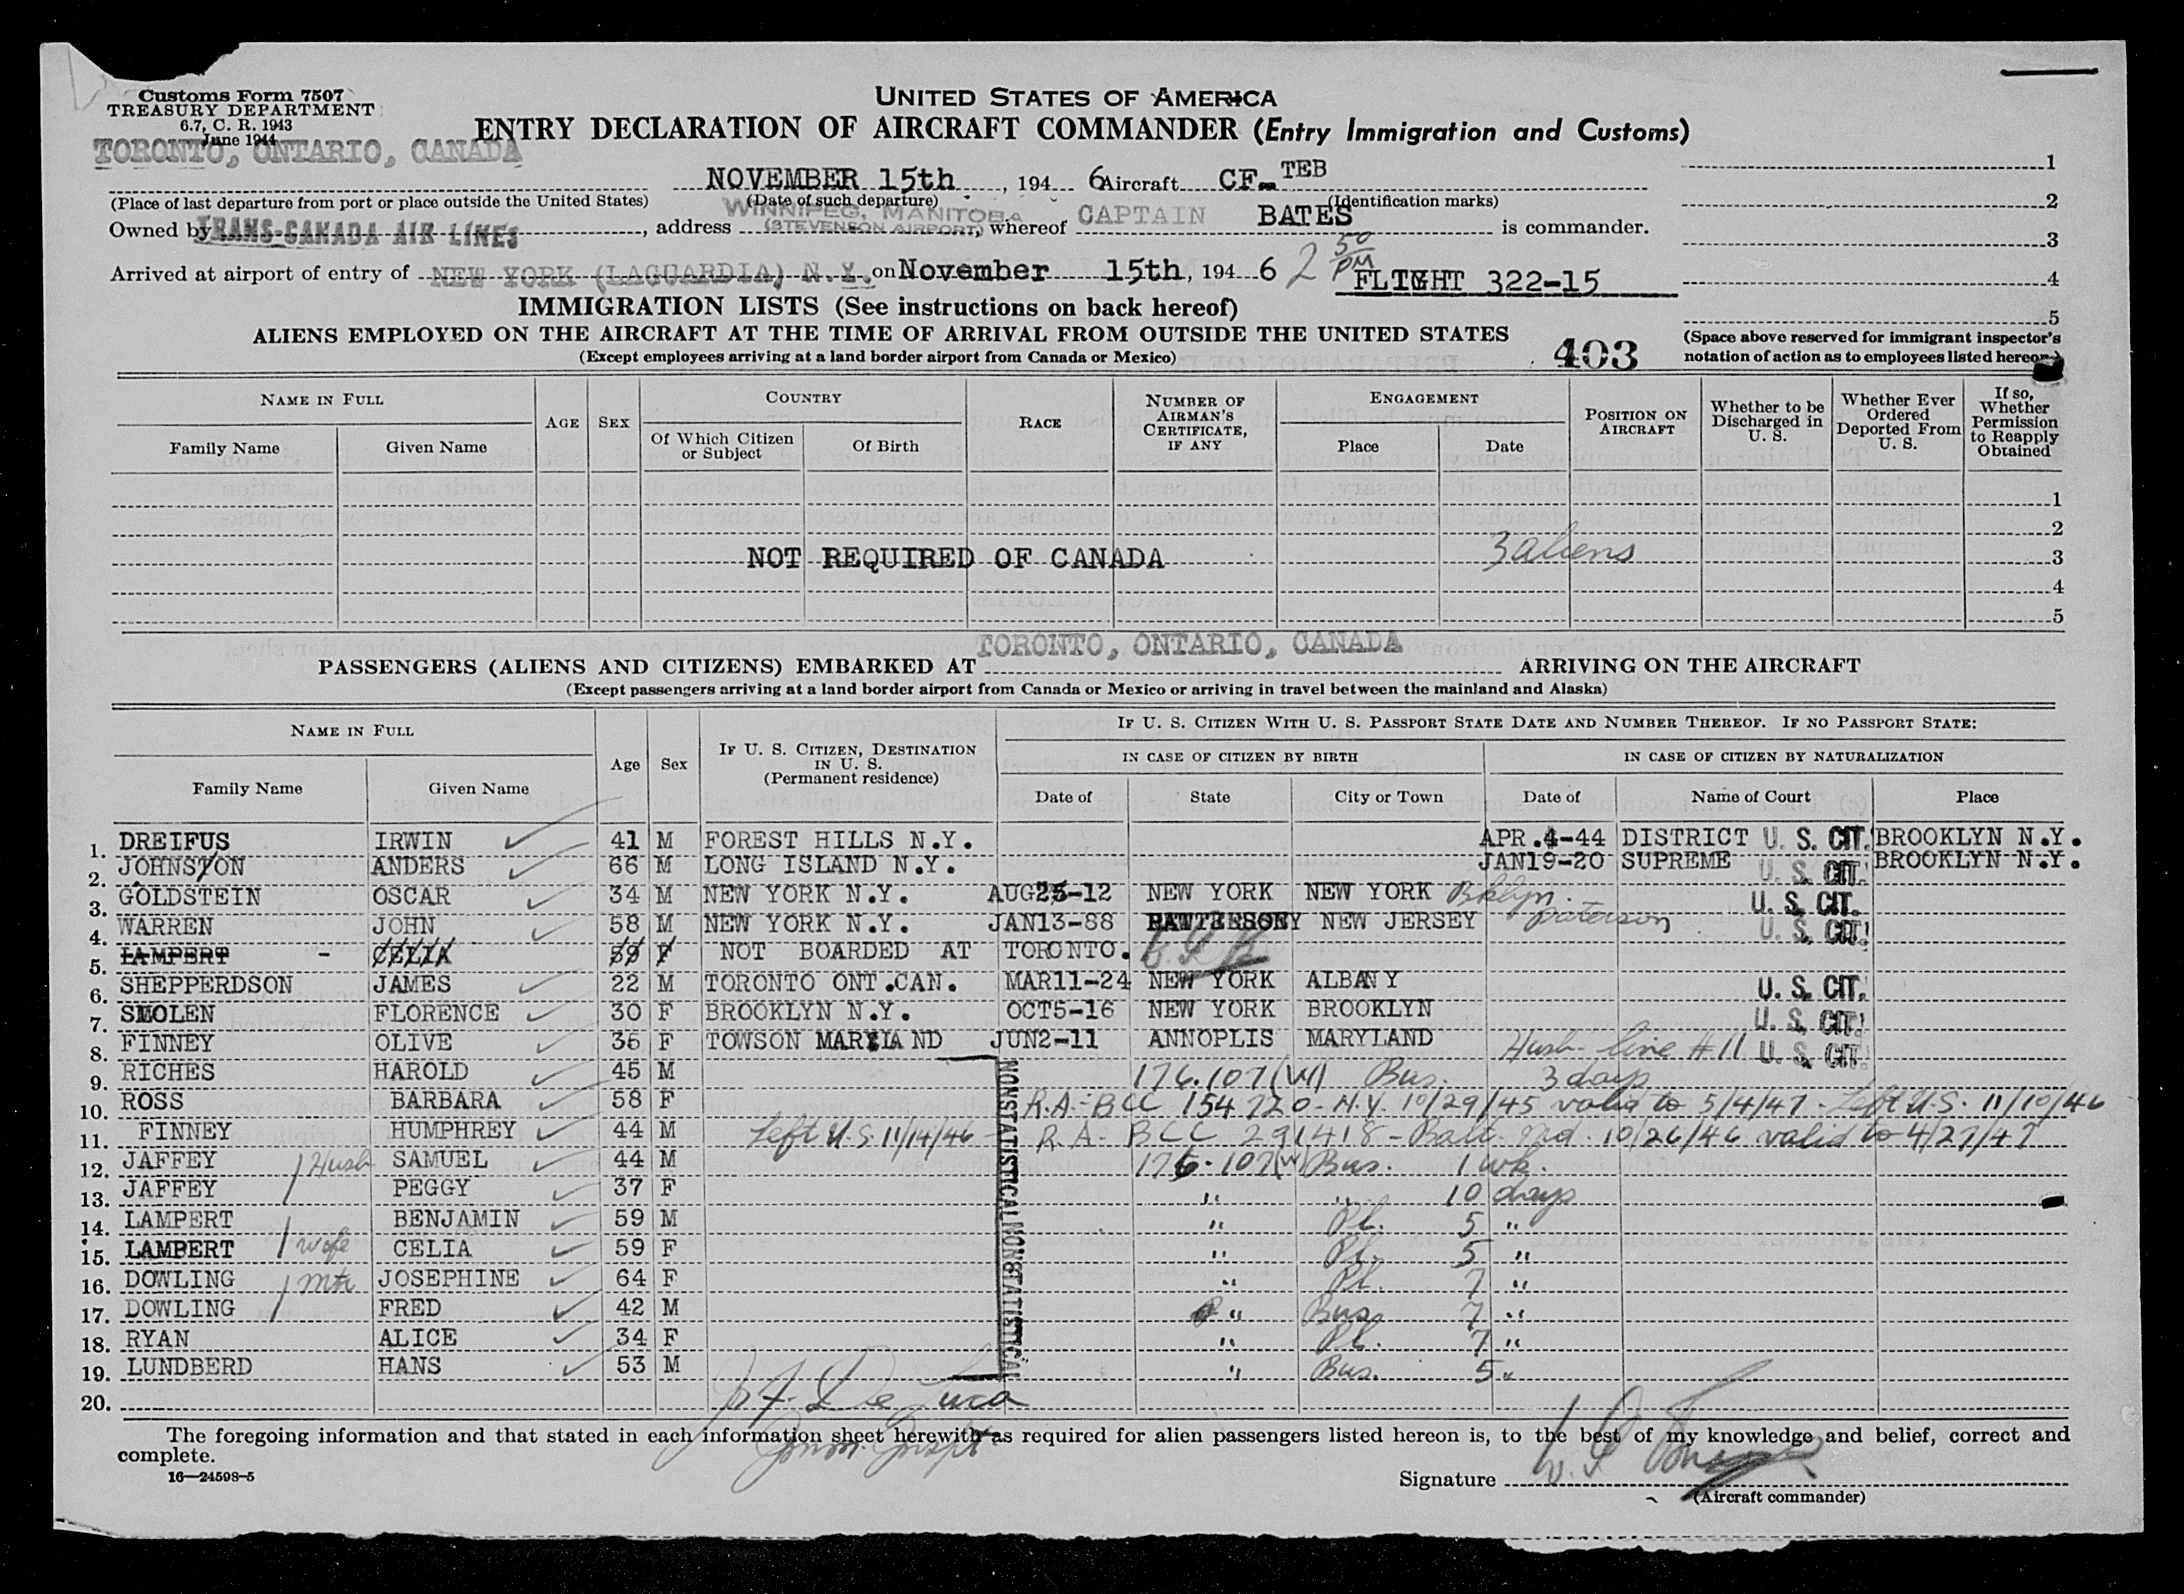 Customs Form 7507
TREASURY DEPARTMENT
6.7, C. R. 1943
June 1944
UNITED STATES OF AMERICA
ENTRY DECLARATION OF AIRCRAFT COMMANDER (Entry Immigration and Customs)
TORONTO, ONTARIO, CANADA
NOVEMBER 15th, 194 6 Aircraft CF-TEB
(Place of last departure from port or place outside the United States) (Date of such departure) (Identification marks)
WINNIPEG, MANITOBA
Owned by TRANS-CANADA AIR LINES, address (STEVENSON AIRPORT), whereof CAPTAIN BATES is commander.
Arrived at airport of entry of NEW YORK (LAGUARDIA) N.Y. on November 15th, 194 6 2 50 PM
FLIGHT 322-15
1
2
3
4
5
IMMIGRATION LISTS (See instructions on back hereof)
ALIENS EMPLOYED ON THE AIRCRAFT AT THE TIME OF ARRIVAL FROM OUTSIDE THE UNITED STATES
(Except employees arriving at a land border airport from Canada or Mexico)
403
(Space above reserved for immigrant inspector's
notation of action as to employees listed hereon.)
NAME IN FULL
Family Name Given Name
AGE SEX
COUNTRY
Of Which Citizen or Subject Of Birth
RACE
NUMBER OF AIRMAN'S CERTIFICATE, IF ANY
ENGAGEMENT
Place Date
POSITION ON AIRCRAFT
Whether to be Discharged in U. S.
Whether Ever Ordered Deported From U. S.
If so, Whether Permission to Reapply Obtained
1
2
NOT REQUIRED OF CANADA 3 aliens 3
4
5
TORONTO, ONTARIO, CANADA
PASSENGERS (ALIENS AND CITIZENS) EMBARKED AT ARRIVING ON THE AIRCRAFT
(Except passengers arriving at a land border airport from Canada or Mexico or arriving in travel between the mainland and Alaska)
NAME IN FULL
Family Name Given Name
Age Sex
IF U. S. CITIZEN, DESTINATION IN U. S.
(Permanent residence)
IF U. S. CITIZEN WITH U. S. PASSPORT STATE DATE AND NUMBER THEREOF. IF NO PASSPORT STATE:
IN CASE OF CITIZEN BY BIRTH IN CASE OF CITIZEN BY NATURALIZATION
Date of State City or Town Date of Name of Court Place
1. DREIFUS IRWIN 41 M FOREST HILLS N.Y. APR.4-44 DISTRICT U. S. CIT. BROOKLYN N.Y.
2. JOHNSTON ANDERS 66 M LONG ISLAND N.Y. JAN19-20 SUPREME U. S. CIT. BROOKLYN N.Y.
3. GOLDSTEIN OSCAR 34 M NEW YORK N.Y. AUG25-12 NEW YORK NEW YORK Bklyn. U. S. CIT.
4. WARREN JOHN 58 M NEW YORK N.Y. JAN13-88 NEW JERSEY Paterson U. S. CIT.
5. LAMPERT - CELIA 59 F NOT BOARDED AT TORONTO.
6. SHEPPERDSON JAMES 22 M TORONTO ONT.CAN. MAR11-24 NEW YORK ALBANY U. S. CIT.
7. SMOLEN FLORENCE 30 F BROOKLYN N.Y. OCT5-16 NEW YORK BROOKLYN U. S. CIT.
8. FINNEY OLIVE 36 F TOWSON MARYLAND JUN2-11 ANNOPLIS MARYLAND Husb- line #11 U. S. CIT.
9. RICHES HAROLD 45 M 176.107(W) Bus. 3 days
10. ROSS BARBARA 58 F R.A.-BCC 154720-N.Y. 10/29/45 valid to 5/4/47. Left U.S. 11/10/46
11. FINNEY HUMPHREY 44 M Left U.S. 11/14/46 - R.A- BCC 291418-Balt. Md. 10/26/46 valid to 4/27/47
12. JAFFEY Husb SAMUEL 44 M 176.107(W) Bus. 1 wk.
13. JAFFEY PEGGY 37 F " " 10 days
14. LAMPERT BENJAMIN 59 M " Pl. 5 "
15. LAMPERT wife CELIA 59 F " Pl. 5 "
16. DOWLING Mth JOSEPHINE 64 F " Pl. 7 "
17. DOWLING FRED 42 M " Bus. 7 "
18. RYAN ALICE 34 F " Pl. 7 "
19. LUNDBERD HANS 53 M " Bus. 5 "
20.
NONSTATISTICAL NONSTATISTICAL
De Luca
Immi. Inspt
The foregoing information and that stated in each information sheet herewith as required for alien passengers listed hereon is, to the best of my knowledge and belief, correct and
complete.
16—24598-5
Signature
(Aircraft commander)